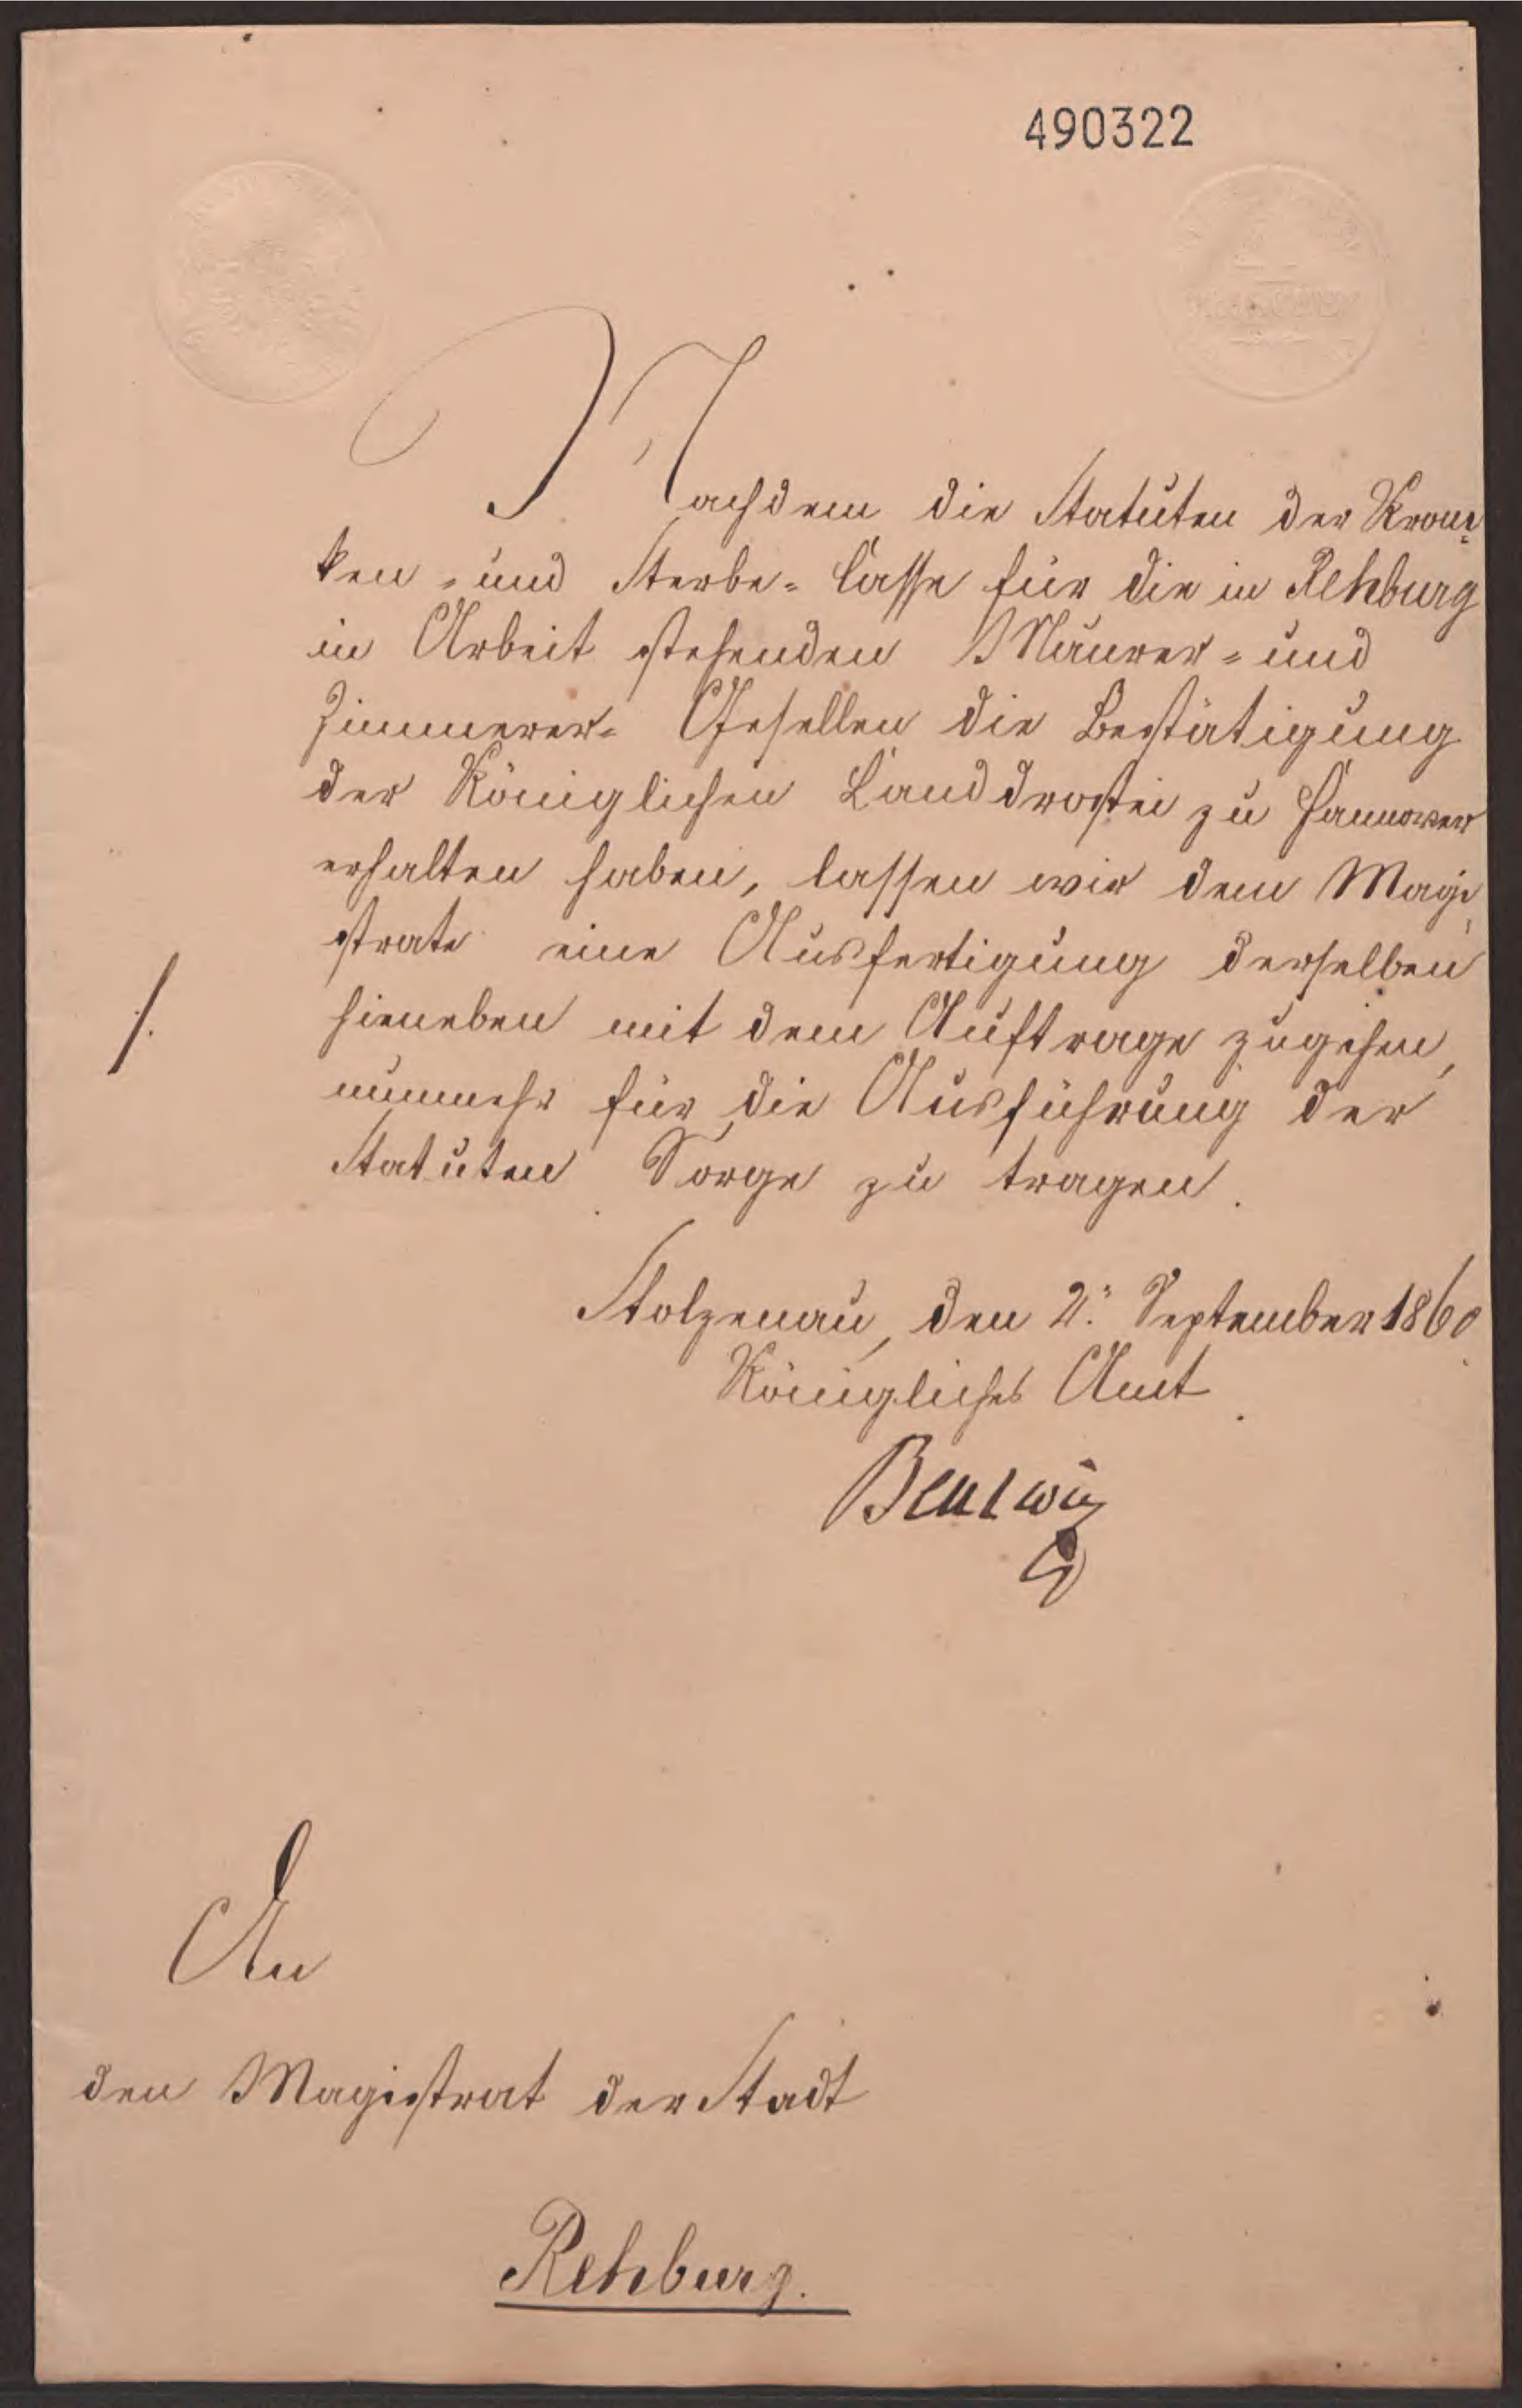 490322
Nachdem die Statuten der Kran-
ken- und Sterbe-Casse für die in Rehburg
in Arbeit stehenden Maurer- und
Zimmerer-Gesellen die Bestätigung
der Königlichen Landdrostei zu Hannover
erhalten haben, lassen wir dem Magi-
strate eine Ausfertigung derselben
hieneben mit dem Auftrage zugehen,
nunmehr für die Ausführung der
Statuten Sorge zu tragen.
Stolzenau, den 2. September 1860.
Königliches Amt.
Beulwiz
An
den Magistrat der Stadt
Rehburg.